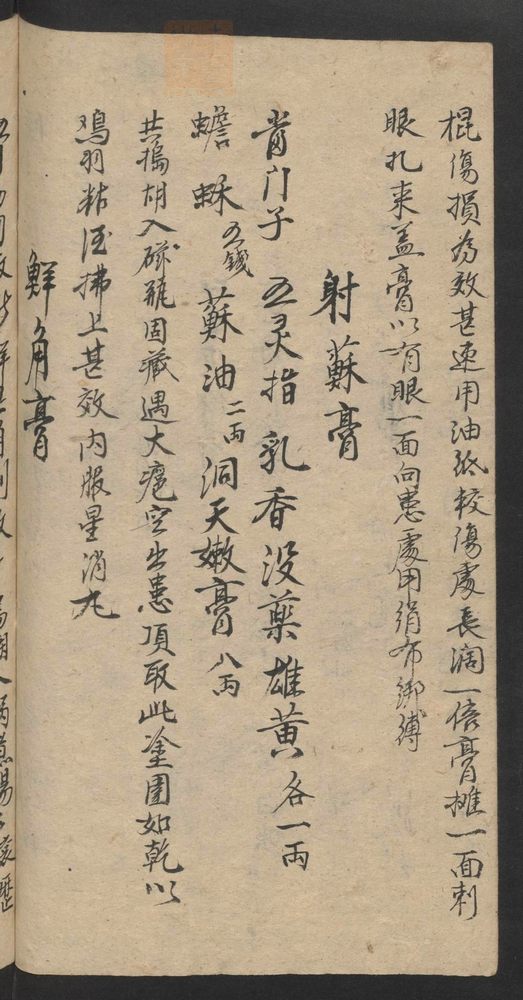 棍傷損為效甚速用油紙較傷處長濶一倍膏攤一面刺
眼扎來蓋膏以有眼一面向患處用絹布綁縛
射蘇膏
膏门子 五灵指 乳香没藥雄黄各一両
蟾蘇五錢 蘇油二両 洞天嫩膏八両
共搗胡入磁瓶固藏遇大瘡空出患項取此塗圍如乾以
鳮羽粘酒拂上甚效内服星消丸
鮮角膏